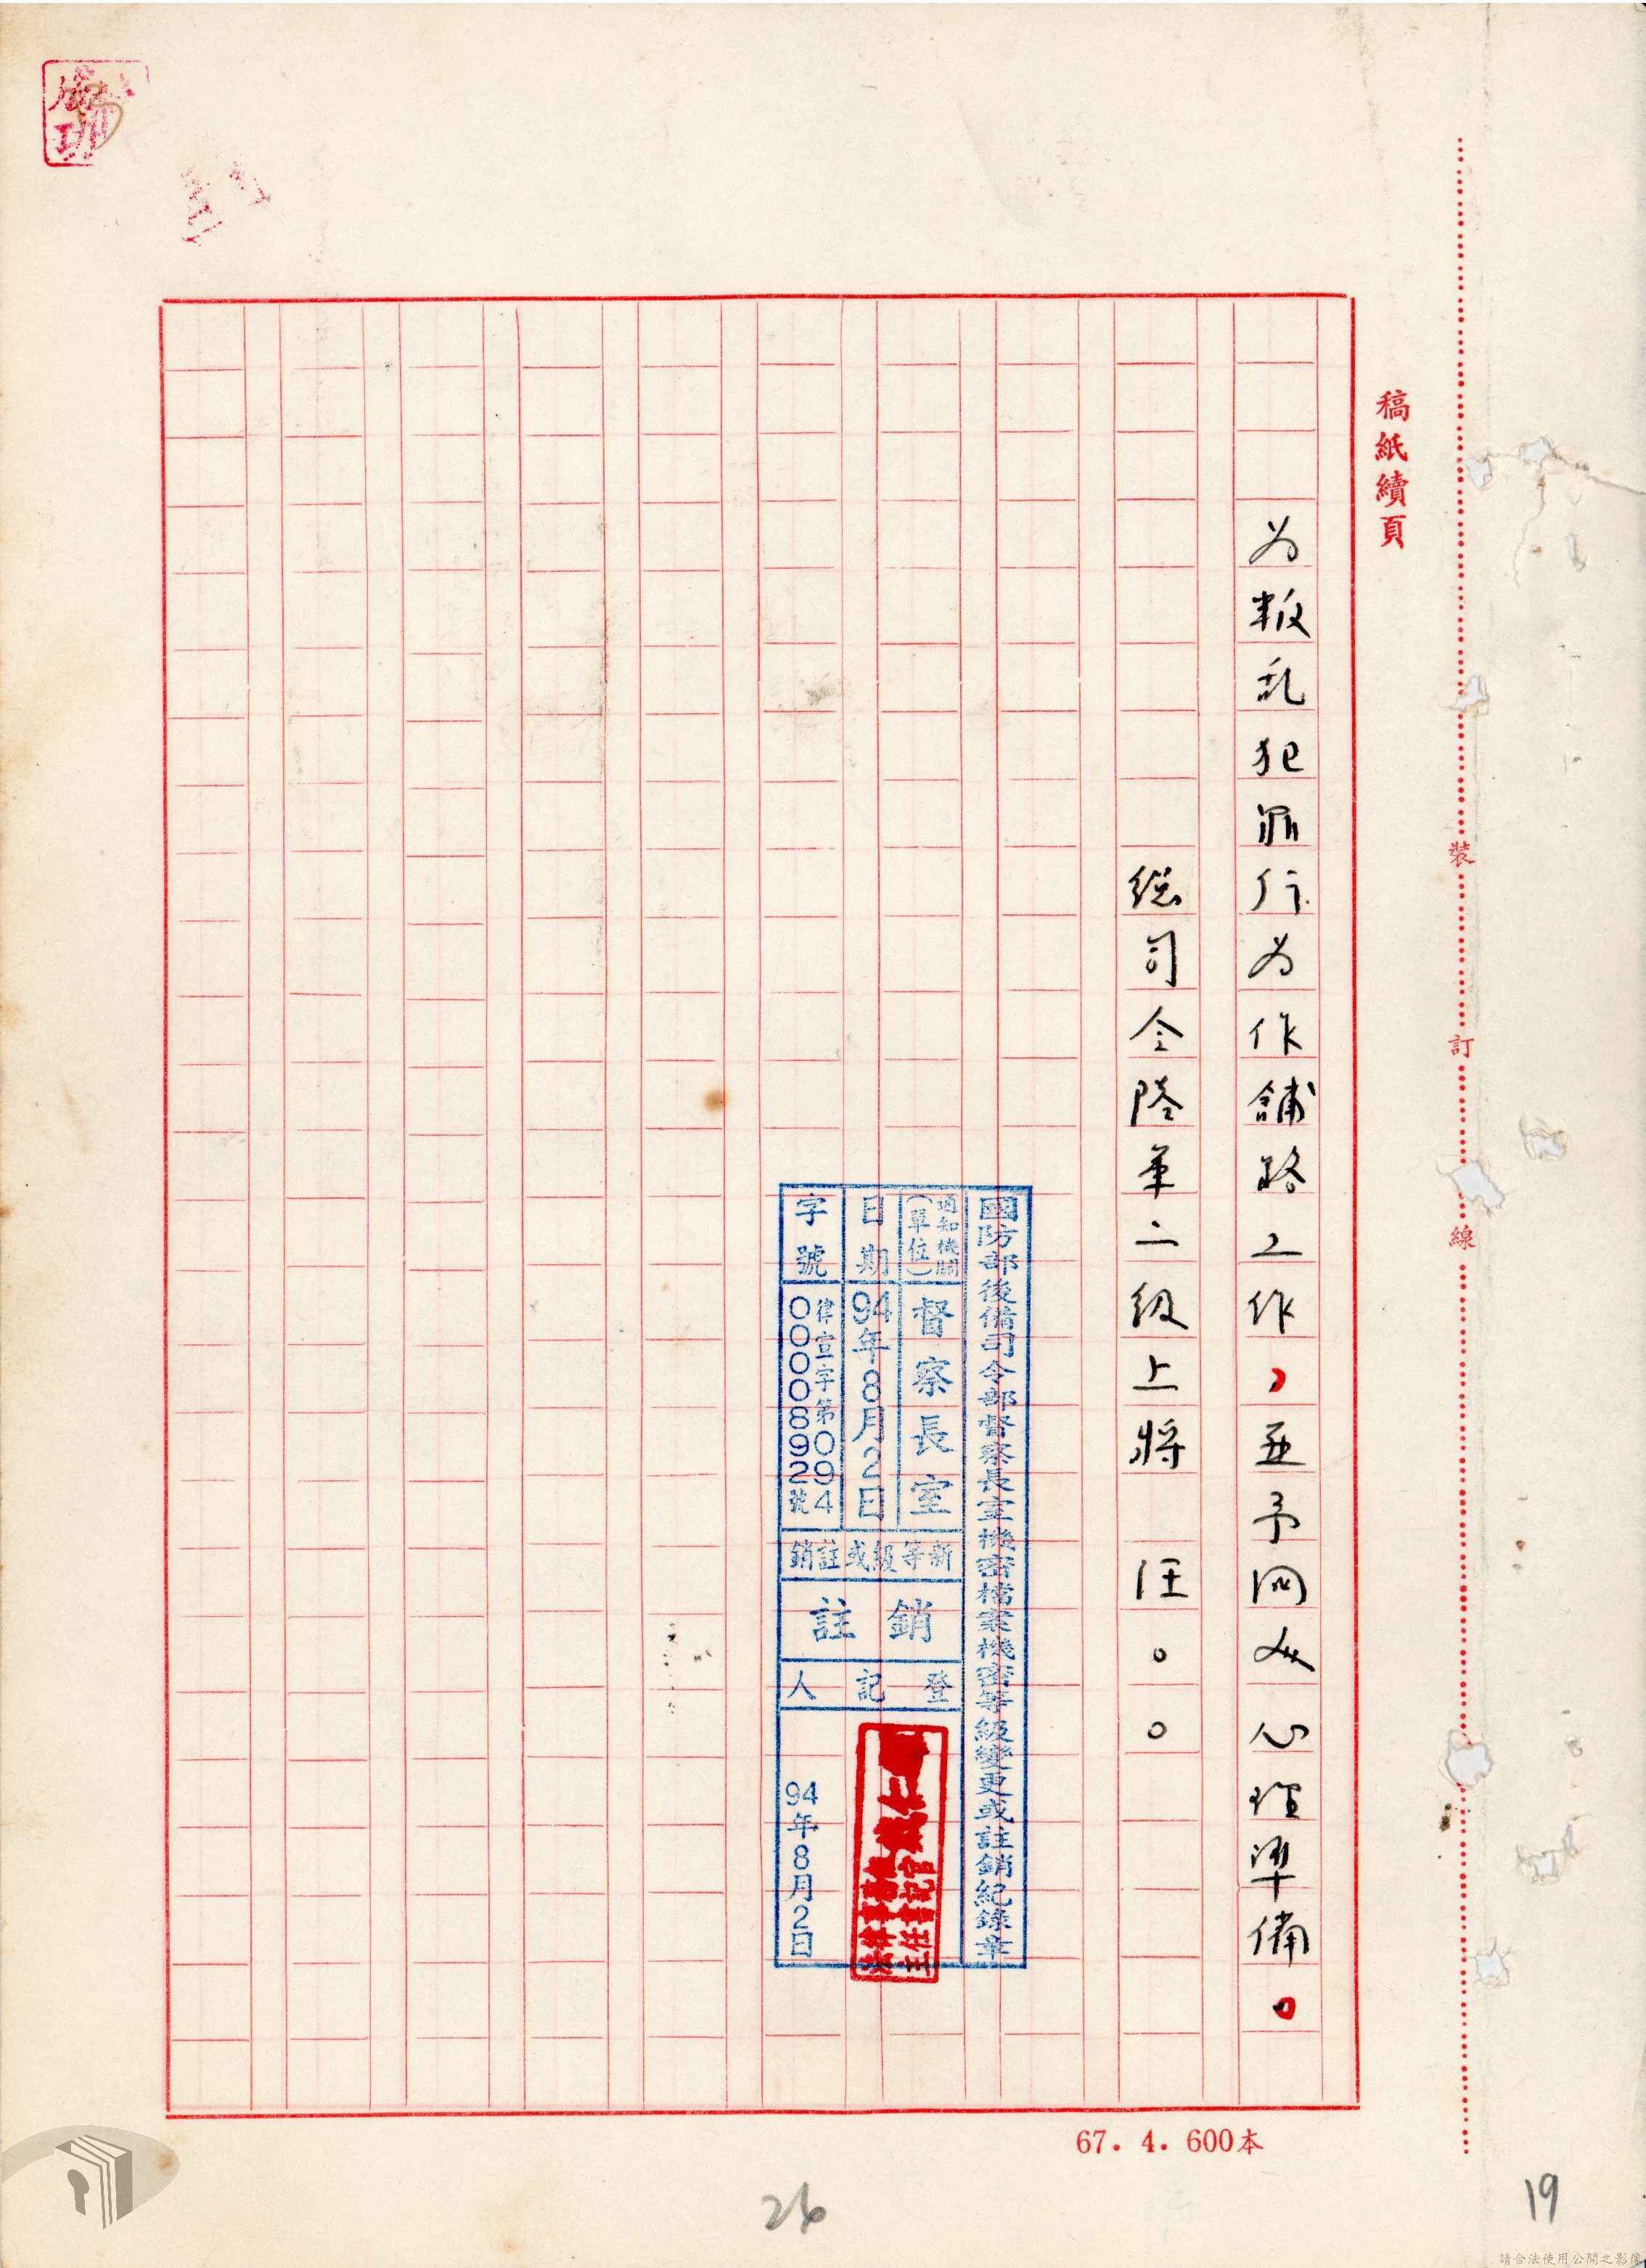 稿紙續頁
为叛乱犯罪行为作舖路工作，並予同如心理準備。
總司令陸軍二級上將 汪○○
國防部後備司令部督察長室機密檔案機密等級變更或註銷紀錄章
通知機關(單位)
督察長室
日期
94年8月2日
字號
律宣字第0940000892號
新等級或註銷
註銷
登記人
主任書記官
94年8月2日
裝訂線
67.4.600本
26
19
請合法使用公開之影像